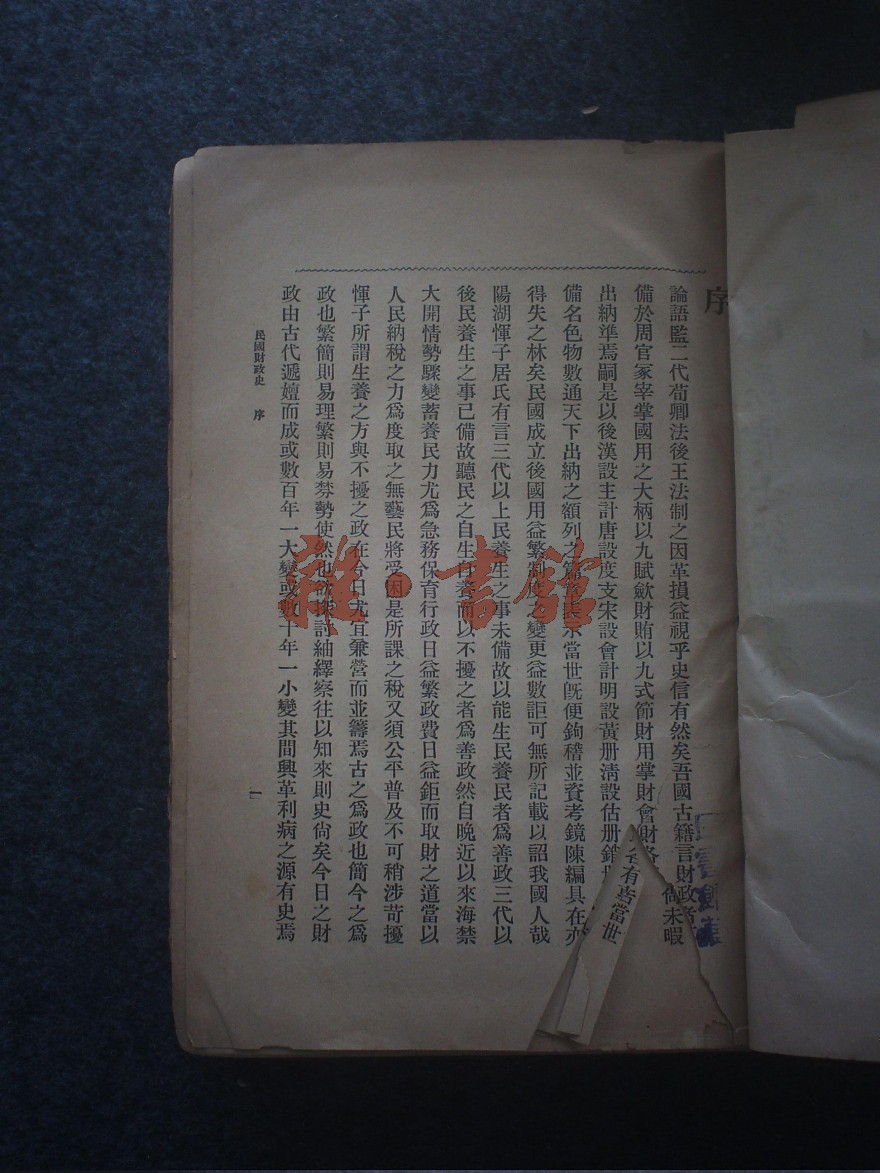 序
論語監二代荀卿法後王法制之因革損益視乎史信有然矣吾國古籍言財政者
備於周官冢宰掌國用之大柄以九賦斂財賄以九式節財用掌財會財
出納準焉嗣是以後漢設主計唐設度支宋設會計明設黃册清設估册銷
備名色物數通天下出納之額列之篇當世旣便鉤稽並資考鏡陳編具在亦
得失之林矣民國成立後國用益繁制度之變更益數詎可無所記載以詔我國人哉
陽湖惲子居氏有言三代以上民養生之事未備故以能生民養民者爲善政三代以
後民養生之事已備故聽民之自生自養而以不擾之者爲善政然自晚近以來海禁
大開情勢驟變蓄養民力尤爲急務保育行政日益繁政費日益鉅而取財之道當以
人民納稅之力爲度取之無藝民將受困是所課之稅又須公平普及不可稍涉苛擾
惲子所謂生養之方與不擾之政在今日尤宜兼營而並籌焉古之爲政也簡今之爲
政也繁簡則易理繁則易棼勢使然也欲探討紬繹察往以知來則史尚矣今日之財
政由古代遞嬗而成或數百年一大變或數十年一小變其間興革利病之源有史焉
民國財政史 序
一
尚未暇
有當世
雜·書館